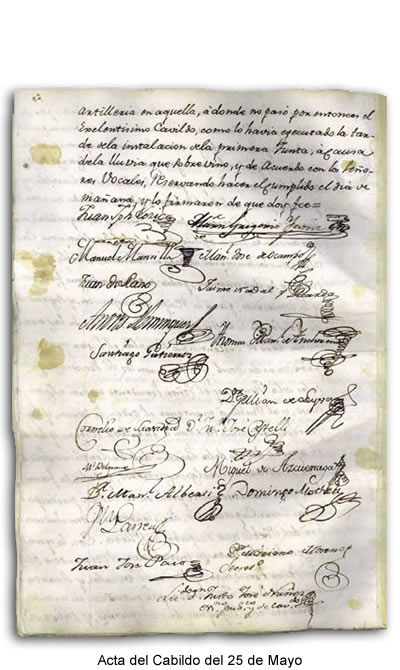 Artilleria en aquella, à donde no pasò por entonces el
Exelentisimo Cavildo, como lo havia executado la tar-
de dela instalacion dela primera Junta, à causa
dela lluvia que sobrevino, y de Acuerdo con los Seño-
res Vocales, reservando hacer el cumplido el dia de
mañana, y lo firmaron de que doy fee=
Juan Jph Lezica Martin Gregorio Yaniz
Manuel Mansilla Man.l José de Ocampo
Juan de Llano Jaime Nadal y Guarda
Andrés Dominguez Thomas Man.l de Anchorena
Santiago Gutierrez
D.r Julian de Leyva
Cornelio de Saavedra D.r Ju.n José Castelli
M.l Belgrano Miguel de Azcuenaga
D.r Man.l Alberti Domingo Matheu
Ju.n Larrea
Juan José Paso D.r Mariano Moreno
Secret.o
Lic.do D.n Justo José Nuñez
Acta del Cabildo del 25 de Mayo